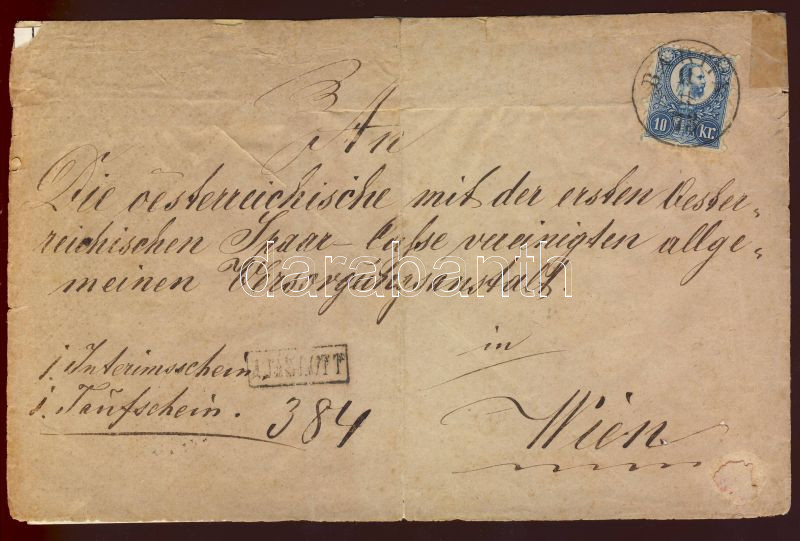 An
Die oesterreichische mit der ersten Oester-
reichischen Spaar-Casse vereinigten allge-
meinen Versorgungsanstalt
in
Wien.
1. Interimsschein
1. Taufschein.
384
10 Kr.
AJÁNLOTT
darabanth